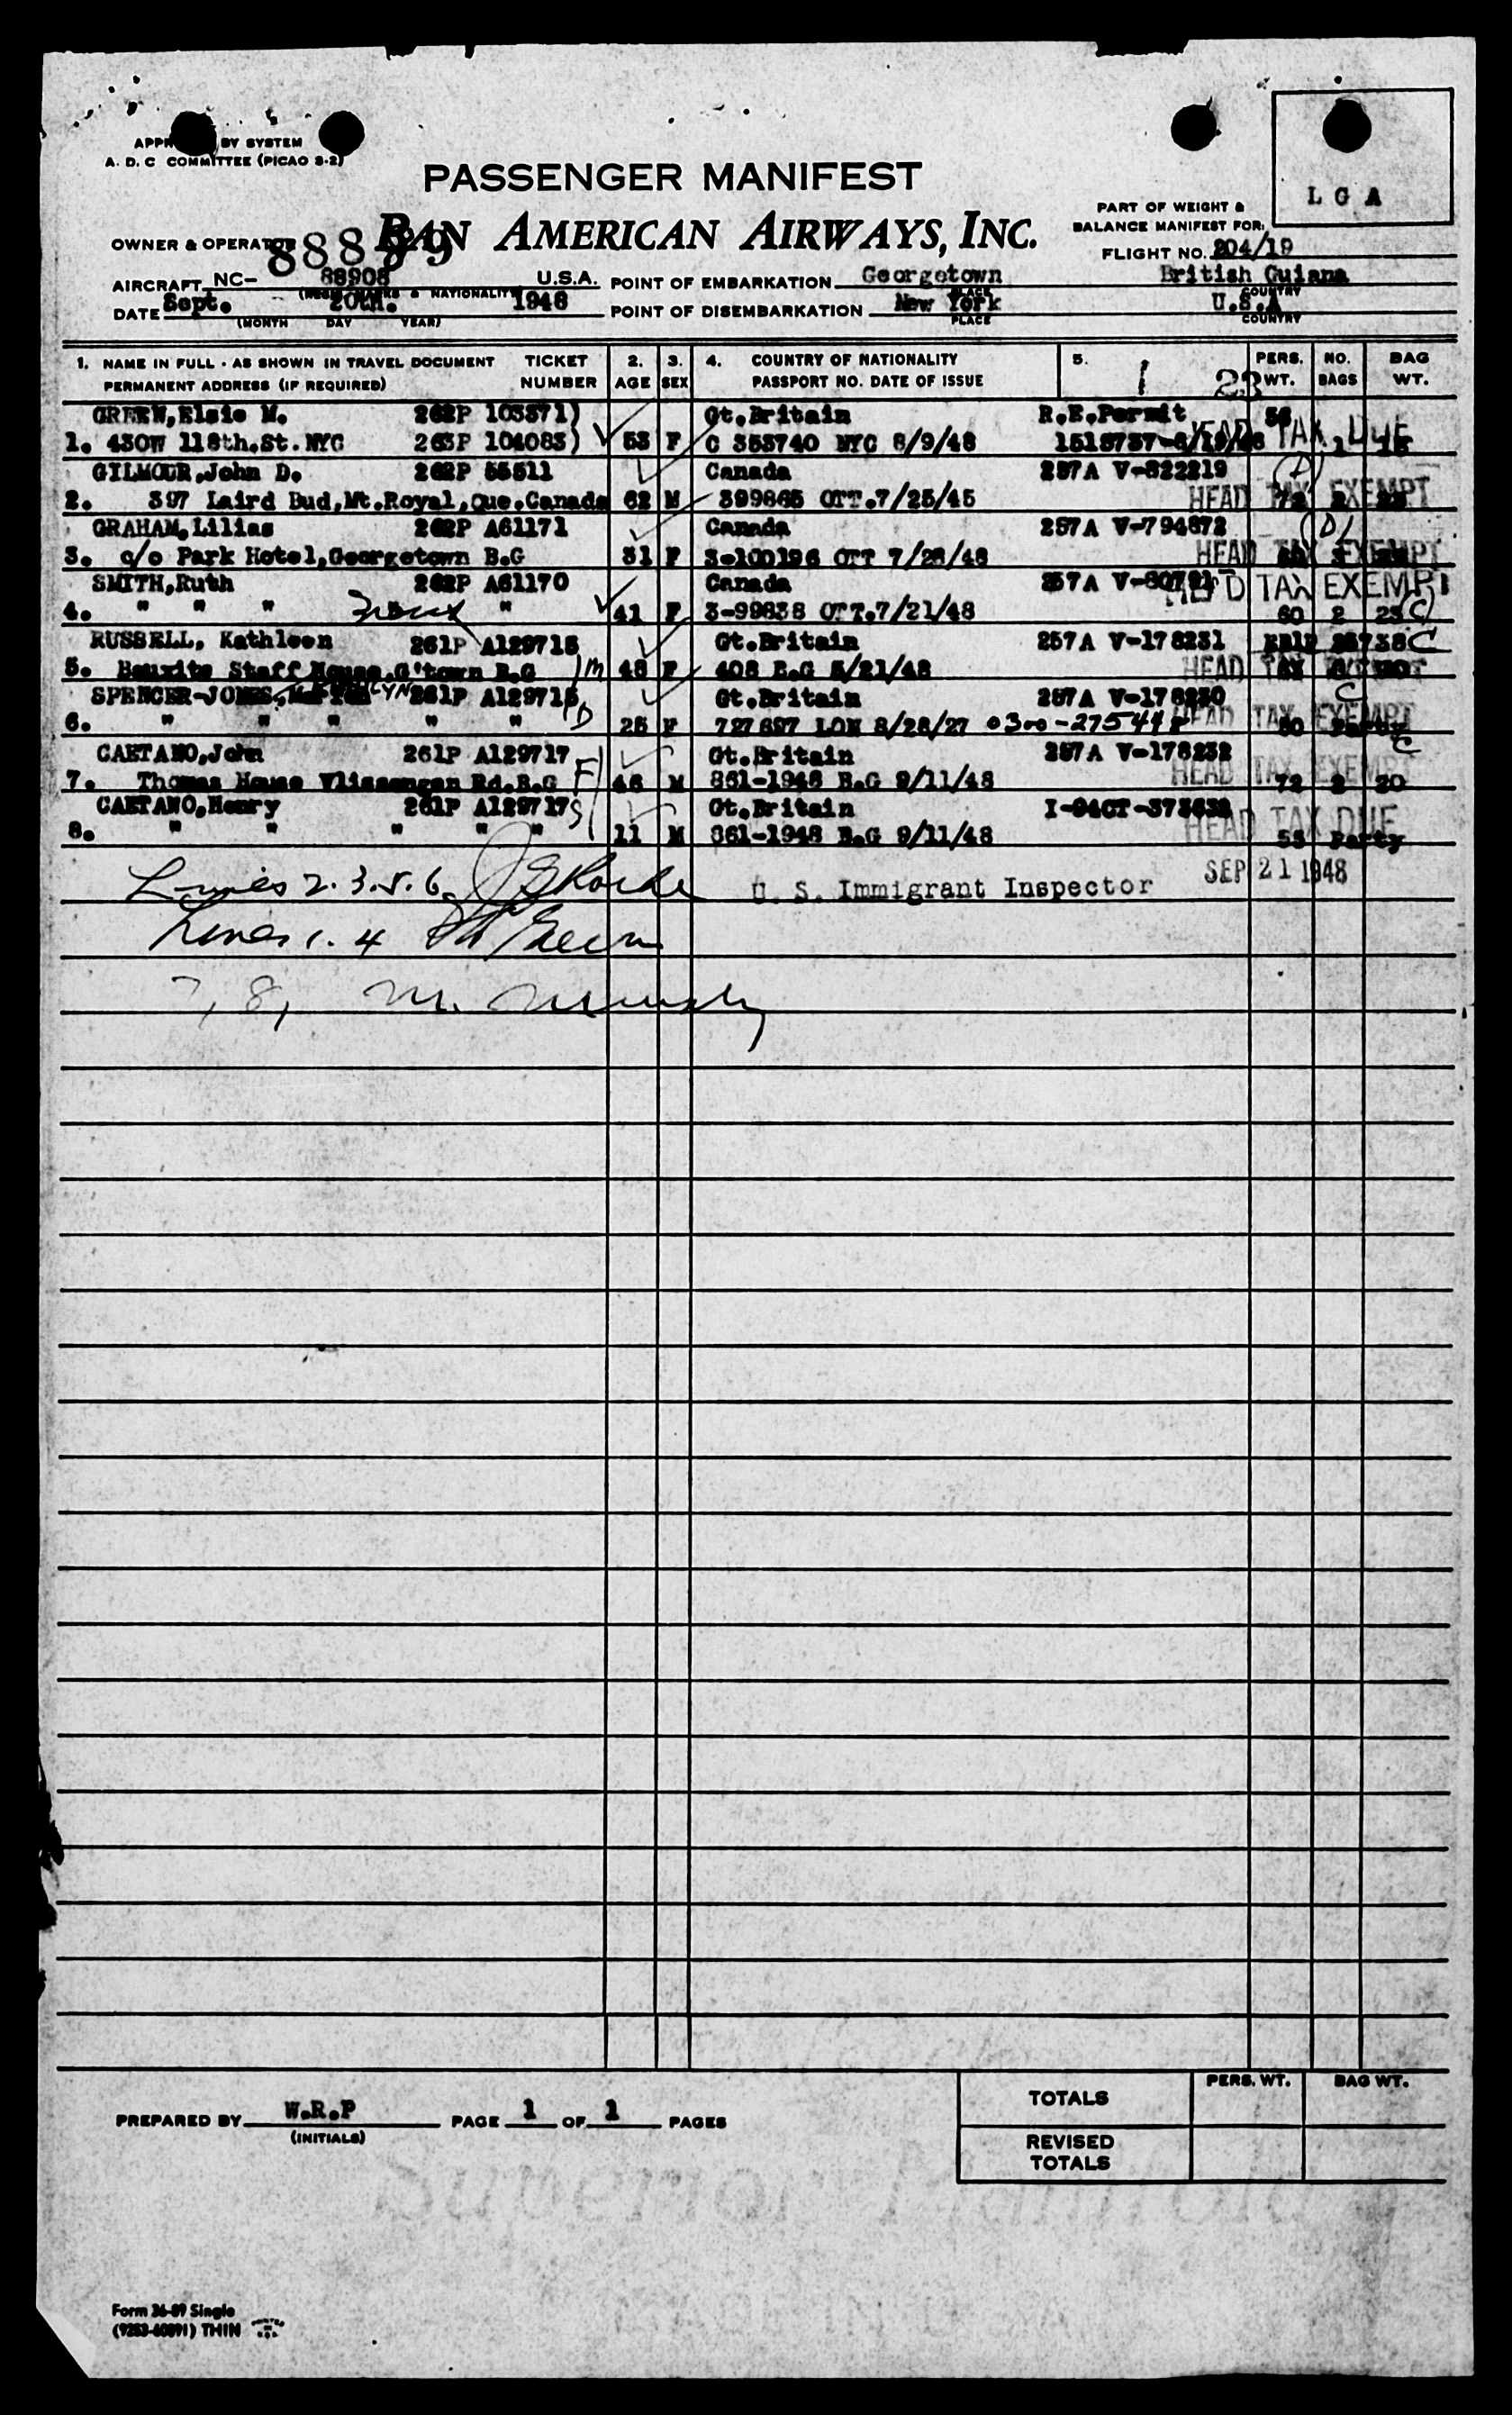 APPR BY SYSTEM
A. D. C COMMITTEE (PICAO S-2)
PASSENGER MANIFEST
LGA
PART OF WEIGHT &
BALANCE MANIFEST FOR:
OWNER & OPERATOR
AMERICAN AIRWAYS, INC.
FLIGHT NO. 204/19
AIRCRAFT NC- 88908 U.S.A. POINT OF EMBARKATION Georgetown British Guiana
PLACE COUNTRY
DATE Sept. 20th. 1948 POINT OF DISEMBARKATION New York U.S.A
(MONTH DAY YEAR) PLACE COUNTRY
1. NAME IN FULL - AS SHOWN IN TRAVEL DOCUMENT TICKET 2. 3. 4. COUNTRY OF NATIONALITY 5. 1 23 PERS. NO. BAG
PERMANENT ADDRESS (IF REQUIRED) NUMBER AGE SEX PASSPORT NO. DATE OF ISSUE WT. BAGS WT.
GREEN, Elsie M. 262P 103371) Gt.Britain R.E.Permit 56
1. 430W 118th.St.NYC 263P 104083) 53 F C 353740 NYC 8/9/48 HEAD TAX DUE 1
GILMOUR,John D. 262P 55511 Canada 257A V-822219
2. 397 Laird Bud,Mt.Royal,Que.Canada 62 M 399865 OTT.7/25/45 HEAD TAX EXEMPT
GRAHAM,Lilias 262P A61171 Canada 257A V-794872 (D)
3. c/o Park Hotel,Georgetown B.G 31 F 3-100196 OTT 7/28/48 HEAD TAX EXEMPT
SMITH,Ruth 262P A61170 Canada HEAD TAX EXEMPT
4. " " " " 41 F 3-99838 OTT.7/21/48 60 2 23 (C)
RUSSELL, Kathleen 261P A129715 Gt.Britain 257A V-178231 C
5. Bauxite Staff House,G'town B.G M 48 F 408 B.G 5/21/48 HEAD TAX EXEMPT
SPENCER-JONES, 261P A129715 Gt.Britain 257A V-178230 C
6. " " " " " D 25 F 727897 LON 8/28/27 HEAD TAX EXEMPT Party
CAETANO,John 261P A129717 Gt.Britain 257A V-178232 C
7. Thomas House Vlissengen Rd.B.G F 46 M 861-1948 B.G 9/11/48 HEAD TAX EXEMPT 72 2 20
CAETANO,Henry 261P A129717 S Gt.Britain I-94CT-373632
8. " " " " " 11 M 861-1948 B.G 9/11/48 HEAD TAX DUE 53 Party
Lines 2. 3. 5. 6. U. S. Immigrant Inspector SEP 21 1948
Lines 1. 4
7, 8,
TOTALS PERS. WT. BAG WT.
PREPARED BY W.R.P PAGE 1 OF 1 PAGES
(INITIALS)
REVISED
TOTALS
Form 36-89 Single
THIN